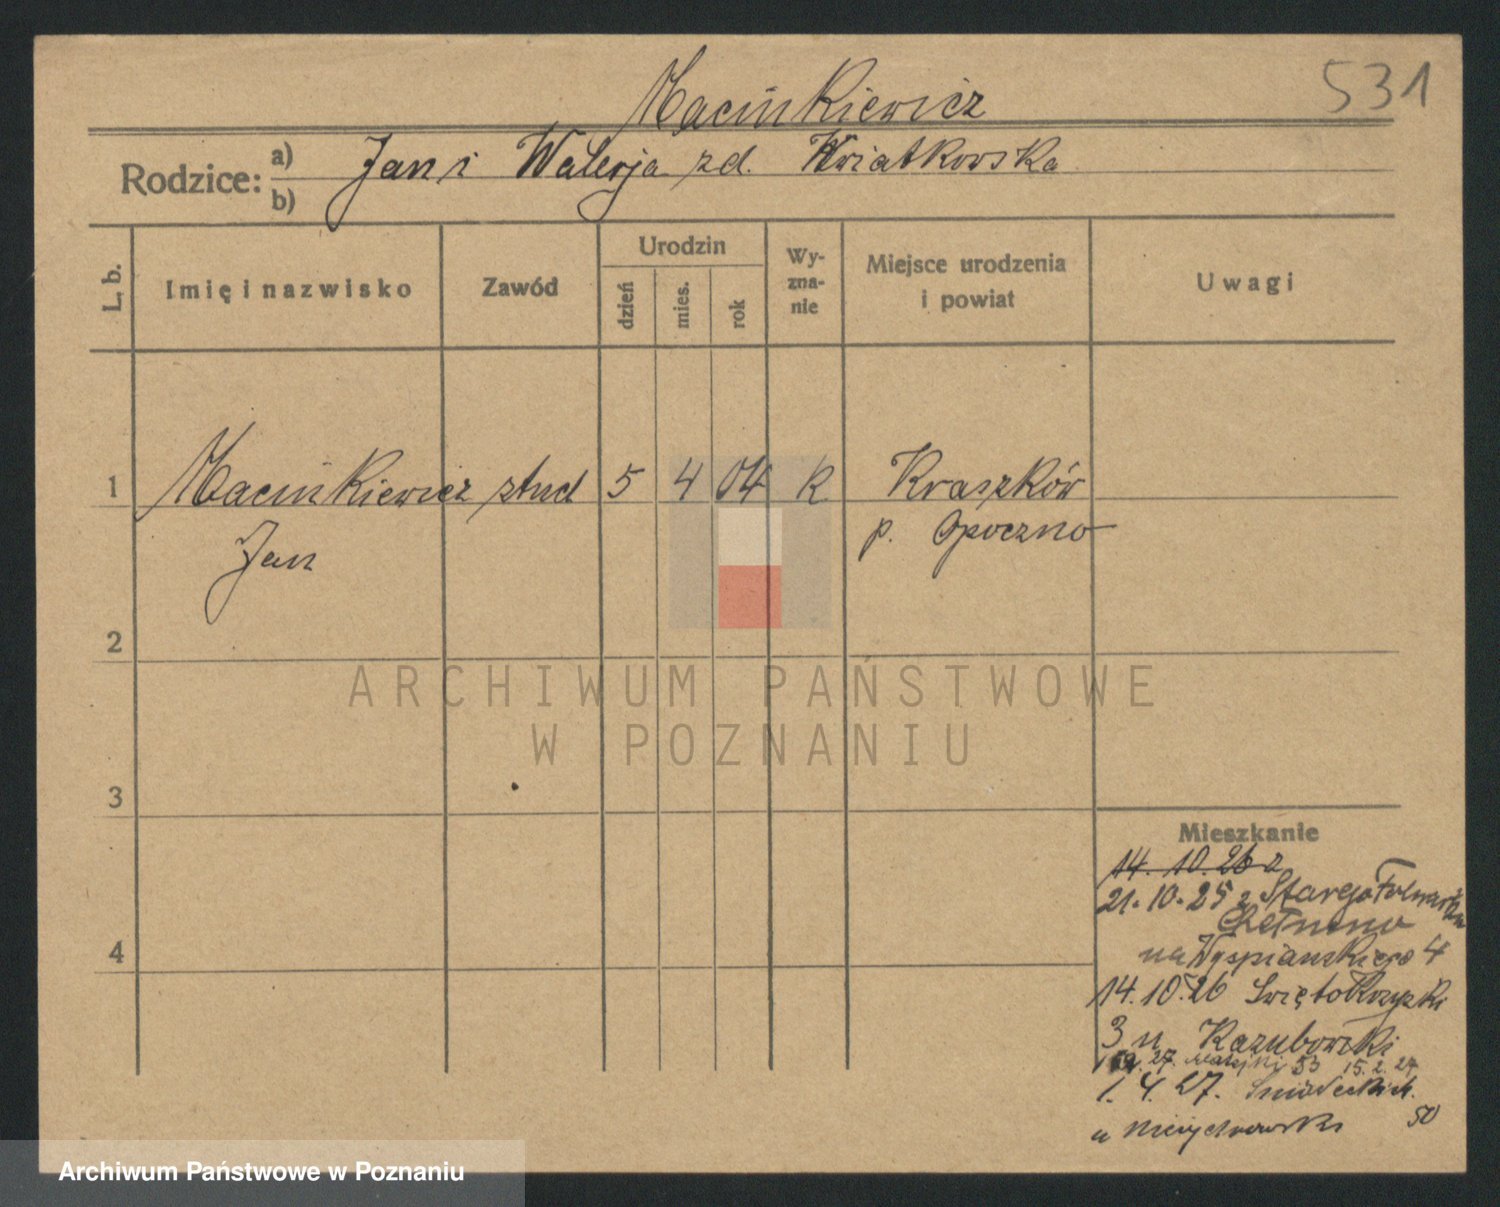 531
Macińkiewicz
Rodzice: a) Jan i Walerja zd. Kwiatkowska
b)
L. b. Imię i nazwisko Zawód Urodzin dzień mies. rok Wy-zna-nie Miejsce urodzenia i powiat Uwagi
1 Macińkiewicz stud 5 4 04 k Kraszków
Jan p. Opoczno
2
ARCHIWUM PAŃSTWOWE
W POZNANIU
3
Mieszkanie
14. 10. 26 z
21. 10. 25 z Starego Folwarku
Chełmno
4
na Wyspiańskiego 4
14. 10. 26 Świętokrzyski
3 u Kazubowski
27. Matejki 53 15. 2. 27
1. 4. 27. Śniadeckich
50
u
Archiwum Państwowe w Poznaniu